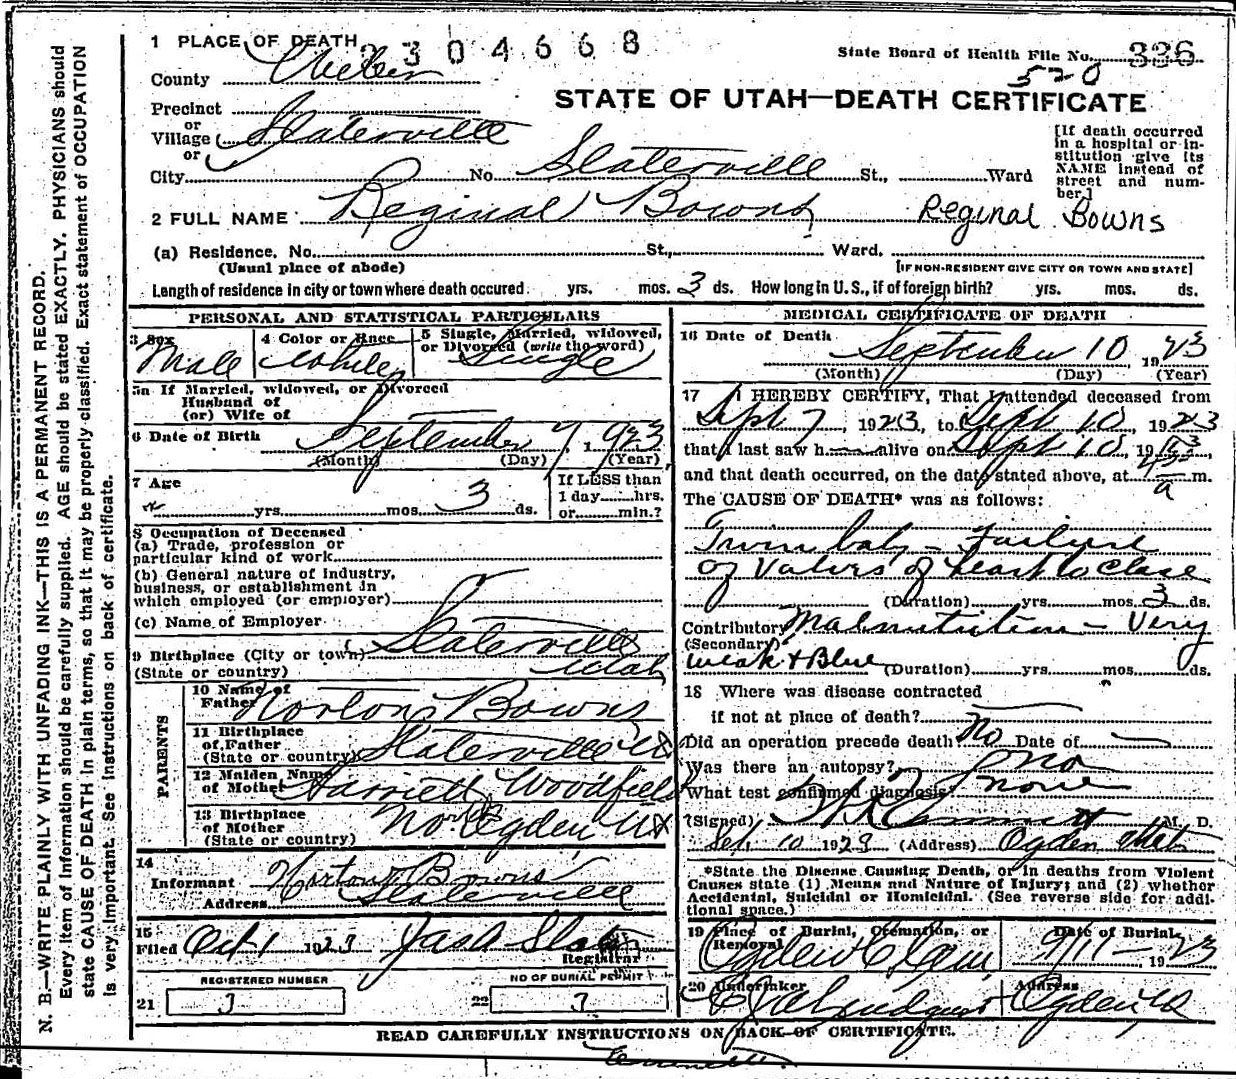 N. B.—WRITE PLAINLY WITH UNFADING INK—THIS IS A PERMANENT RECORD.
Every item of information should be carefully supplied. AGE should be stated EXACTLY. PHYSICIANS should
state CAUSE OF DEATH in plain terms, so that it may be properly classified. Exact statement of OCCUPATION
is very important. See instructions on back of certificate.
1 PLACE OF DEATH
2304668
State Board of Health File No. 336
520
County Weber
STATE OF UTAH—DEATH CERTIFICATE
Precinct
or
Village Slaterville
or
City No Slaterville St., Ward
[If death occurred
in a hospital or in-
stitution give its
NAME instead of
street and num-
ber.]
2 FULL NAME Reginal Bowns Reginal Bowns
(a) Residence, No. St., Ward.
(Usual place of abode) [IF NON-RESIDENT GIVE CITY OR TOWN AND STATE]
Length of residence in city or town where death occured yrs. mos. 3 ds. How long in U. S., if of foreign birth? yrs. mos. ds.
PERSONAL AND STATISTICAL PARTICULARS
3 Sex
Male
4 Color or Race
White
5 Single, Married, widowed,
or Divorced (write the word)
Single
5a If Married, widowed, or Divorced
Husband of
(or) Wife of
6 Date of Birth September 7, 1923
(Month) (Day) (Year)
7 Age
yrs. mos. 3 ds.
If LESS than
1 day hrs.
or min.?
8 Occupation of Deceased
(a) Trade, profession or
particular kind of work
(b) General nature of industry,
business, or establishment in
which employed (or employer)
(c) Name of Employer
9 Birthplace (City or town) Slaterville
(State or country) Utah
PARENTS
10 Name of
Father Norton Bowns
11 Birthplace
of Father
(State or country) Slaterville Ut
12 Maiden Name
of Mother Harriett Woodfield
13 Birthplace
of Mother
(State or country) North Ogden Ut
14
Informant Norton Bowns
Address Slaterville
15
Filed Oct 1 1923
Registrar
REGISTERED NUMBER
21 3
NO OF BURIAL PERMIT
22 7
MEDICAL CERTIFICATE OF DEATH
16 Date of Death
September 10, 1923
(Month) (Day) (Year)
17 I HEREBY CERTIFY, That I attended deceased from
Sept 7, 1923, to Sept 10 1923
that I last saw h alive on Sept 10, 1923,
and that death occurred, on the date stated above, at a m.
The CAUSE OF DEATH* was as follows:
Twin baby - Failure
of Valves of heart to close
(Duration) yrs. mos. 3 ds.
Contributory Malnutrition - Very
(Secondary)
weak + Blue (Duration) yrs. mos. ds.
18 Where was disease contracted
if not at place of death?
Did an operation precede death? No Date of
Was there an autopsy? no
What test confirmed diagnosis? none
(Signed) M. D.
Sept. 10 1923 (Address) Ogden Utah
*State the Disease Causing Death, or in deaths from Violent
Causes state (1) Means and Nature of Injury; and (2) whether
Accidental, Suicidal or Homicidal. (See reverse side for addi-
tional space.)
19 Place of Burial, Cremation, or
Removal
Ogden
Date of Burial
9/11 - 1923
20 Undertaker
Address
Ogden Ut
READ CAREFULLY INSTRUCTIONS ON BACK OF CERTIFICATE.